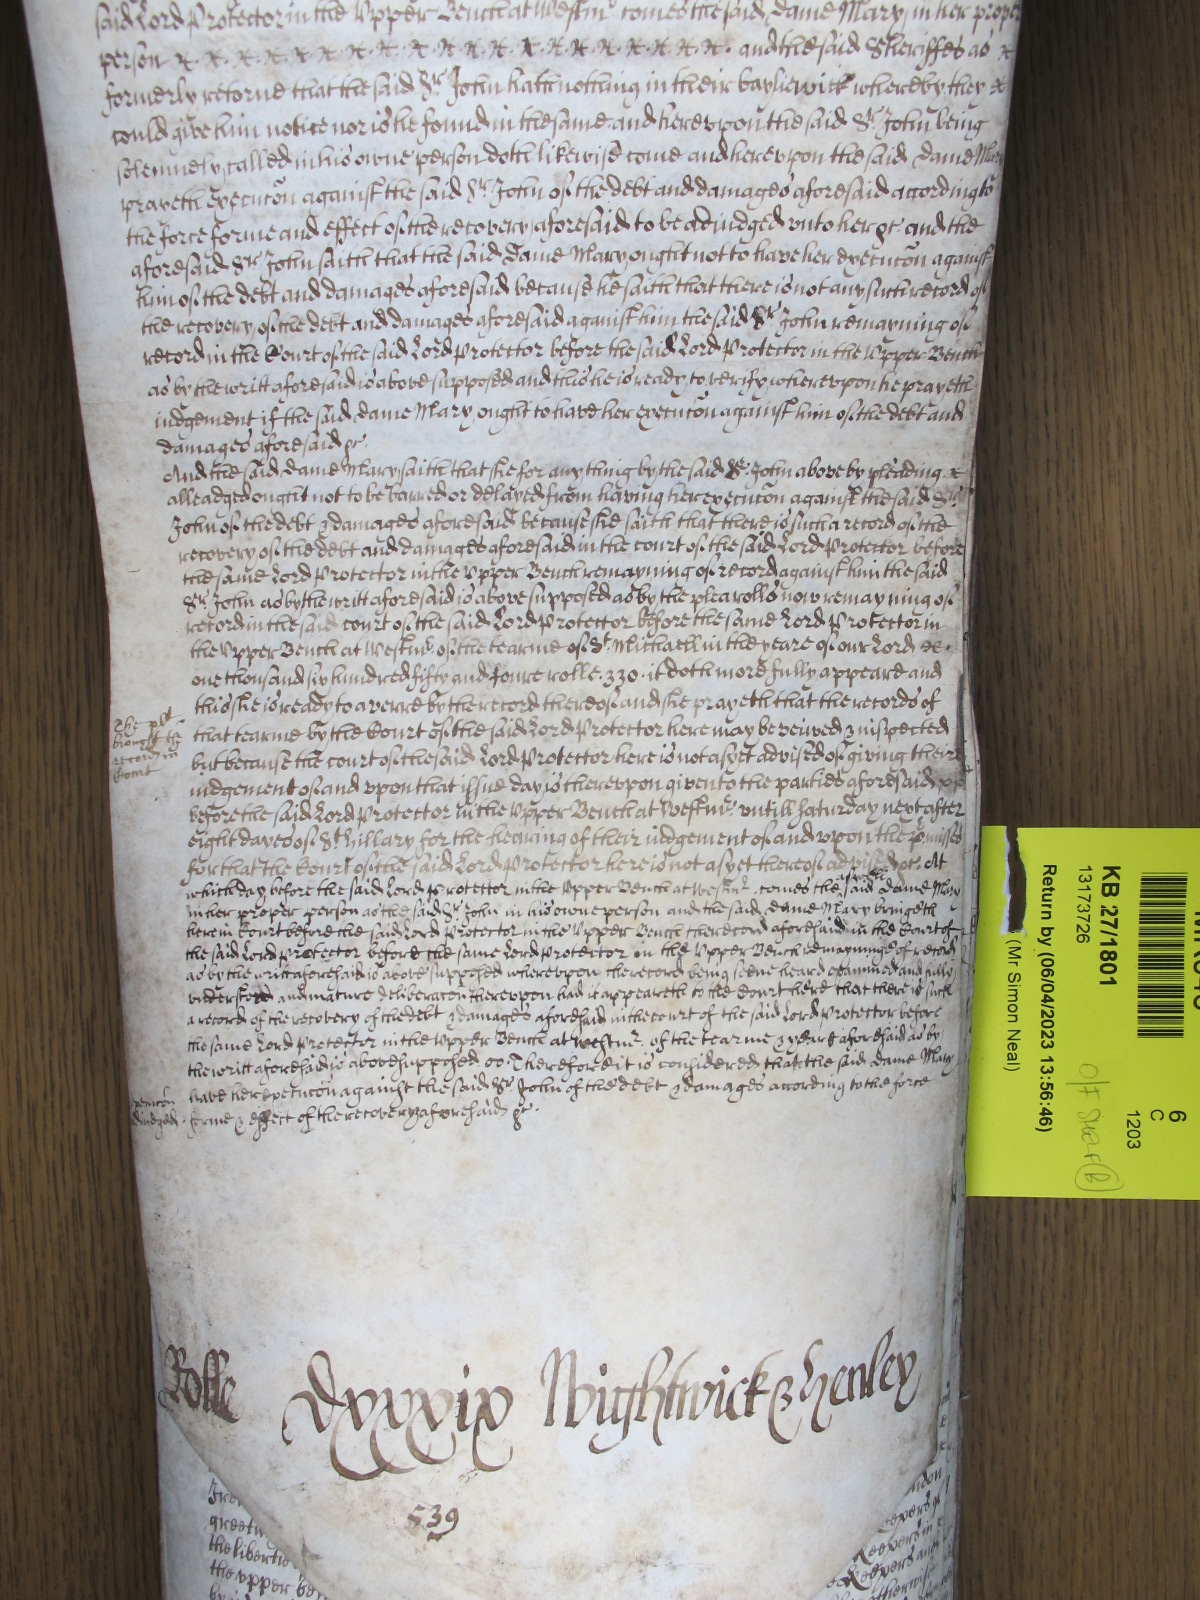 said Lord Protector in the Upper Bench at Westmr comes the said Dame Mary in her proper
person and the said Sheriffes as
formerly retorne that the said Sr John hath nothing in their bayliewick whereby they
could give him notice nor is he found in the same and hereupon the said Sr John being
solemnely called in his owne person doth likewise come and hereupon the said Dame Mary
prayeth execucon against the said Sr John of the debt and damages aforesaid according to
the force forme and effect of the recovery aforesaid to be adiudged unto her &c. And the
aforesaid Sr John saith that the said Dame Mary ought not to have her execucon against
him of the debt and damages aforesaid because he saith that there is not any such record of
the recovery of the debt and damages aforesaid against him the said Sr John remayning of
record in the Court of the said Lord Protector before the said Lord Protector in the Upper Bench
as by the writt aforesaid is above supposed and this he is ready to verify whereupon he prayeth
iudgement if the said Dame Mary ought to have her execucon against him of the debt and
damages aforesaid &c.
And the said Dame Mary saith that she for any thing by the said Sr John above by pleading
alleadged ought not to be barred or delayed from having her execucon against the said Sr
John of the debt & damages aforesaid because she saith that there is such a record of the
recovery of the debt and damages aforesaid in the court of the said Lord Protector before
the same Lord Protector in the Upper Bench remayning of record against him the said
Sr John as by the writt aforesaid is above supposed as by the plea rolls now remayning of
record in the said court of the said Lord Protector before the same Lord Protector in
the Upper Bench at Westmr of the tearme of St Michaell in the yeare of our Lord
one thousand six hundred fifty and foure rolle .330. it doth more fully appeare and
this she is ready to averre by the record thereof and she prayeth that the records of
The plt
brought the
record in
Court
that tearme by the Court of the said Lord Protector here may be veiwed & inspected
but because the court of the said Lord Protector here is not as yet advised of giving their
iudgement of and upon that issue day is thereupon given to the parties aforesaid
before the said Lord Protector in the Upper Bench at Westmr untill Saturday next after
eight dayes of St Hillary for the hearing of their iudgement of and upon the p'misses
for that the Court of the said Lord Protector here is not as yet thereof advised &c. At
which day before the said Lord Protector in the Upper Bench at Westmr comes the aswell said Dame Mary
in her proper person as the said Sr John in his owne person and the said Dame Mary bringeth
here in Court before the said Lord Protector in the Upper Bench the record aforesaid in the Court of
the said Lord Protector before the same Lord Protector in the Upper Bench remayninge of record
as by the writt aforesaid is above supposed whereupon the record being seene heard examined and fully
understood and mature deliberacon thereupon had it appeareth to the Court here that there is such
a record of the recovery of the debt & damages aforesaid in the court of the said Lord Protector before
the same Lord Protector in the Upper Bench at Westmr of the tearme & yeare aforesaid as by
the writt aforesaid is above supposed Therefore it is considered that the said Dame Mary
have her execucon against the said Sr John of the debt & damages according to the force
execucon
adiudged
forme & effect of the recovery aforesaid &c.
Rolle Dxxxix Wightwick & Henley
539
greeting
the libertie
the upper be
KB 27/1801
13173726
Return by (06/04/2023 13:56:46)
(Mr Simon Neal)
6
C
1203